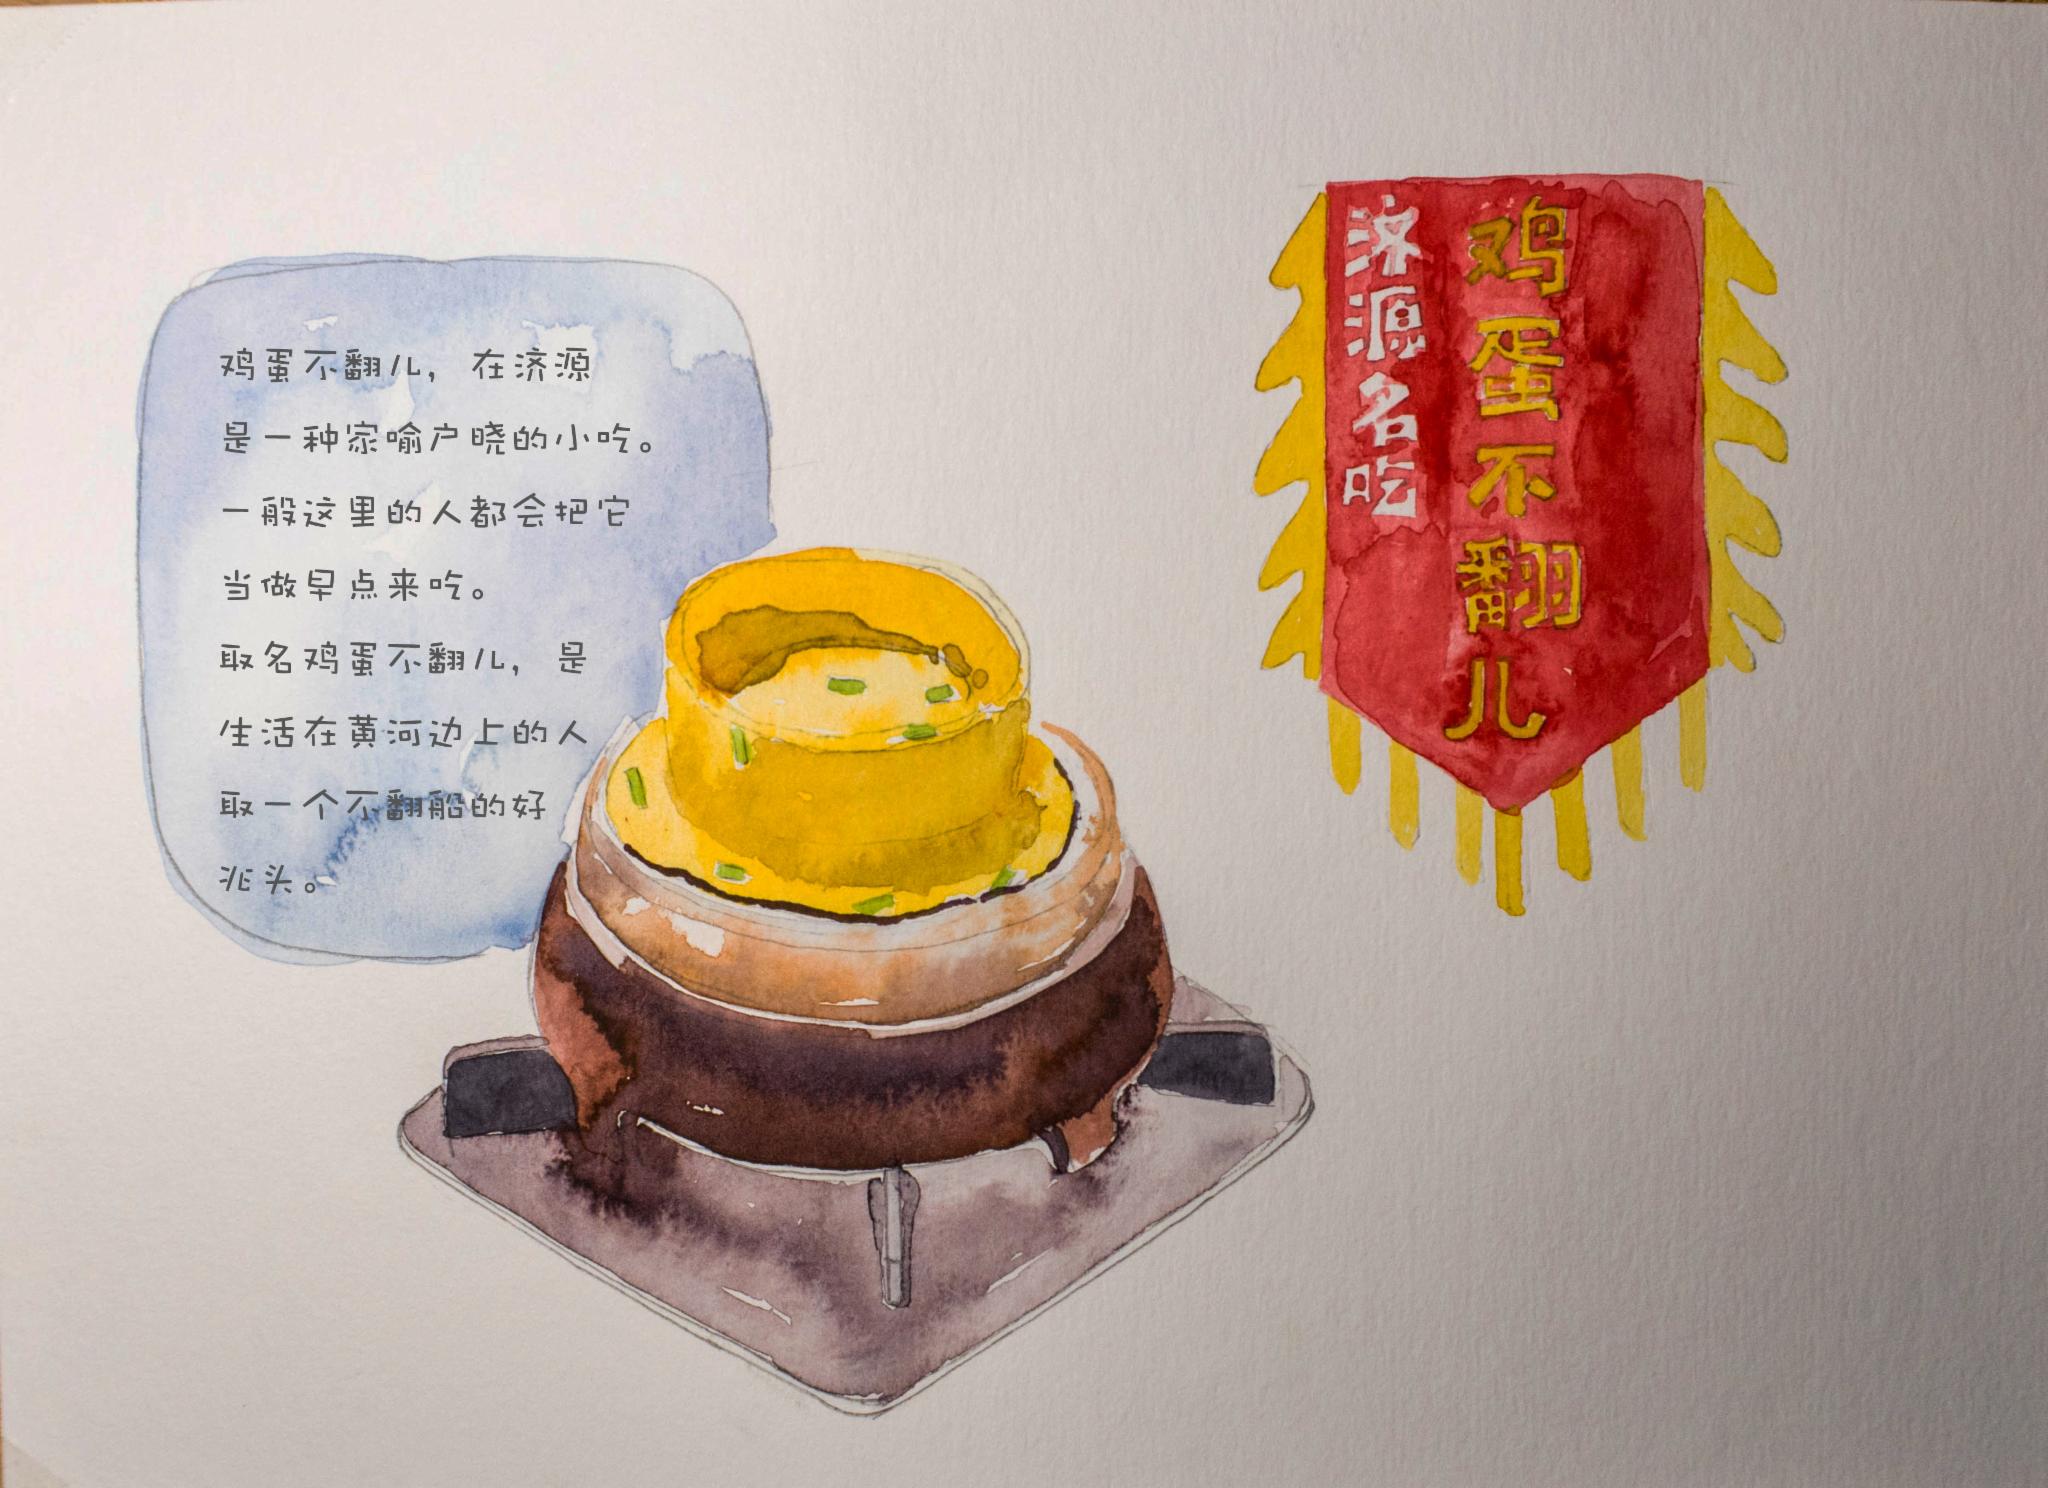 鸡蛋不翻儿，在济源
是一种家喻户晓的小吃。
一般这里的人都会把它
当做早点来吃。
取名鸡蛋不翻儿，是
生活在黄河边上的人
取一个不翻船的好
兆头。
鸡蛋不翻儿
济源名吃